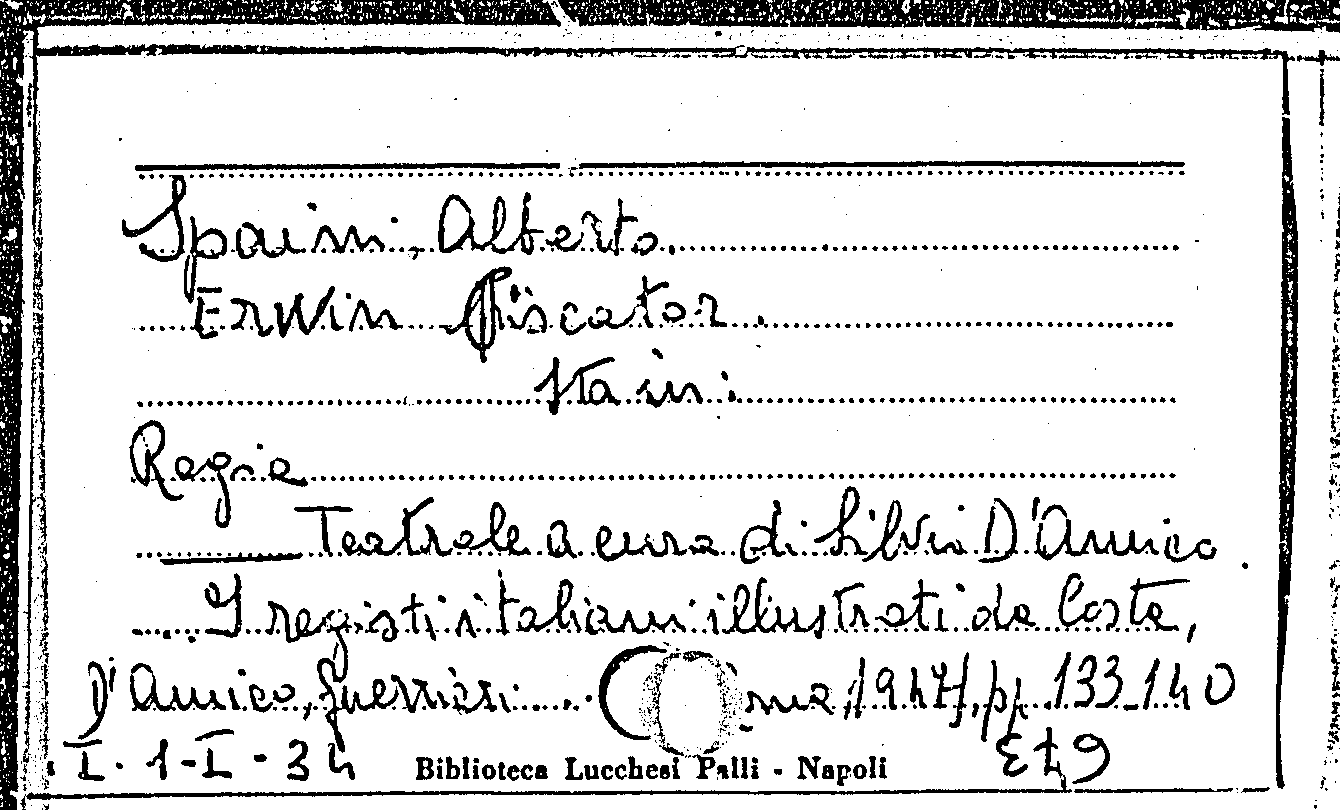 Spaini, Alberto.
Erwin Piscator.
Sta in:
Regia
Teatrale a cura di Silvio D'Amico.
I registi italiani illustrati da Costa,
D'Amico, Guerrieri... 1947, pp. 133-140
I. 1-I-34
Biblioteca Lucchesi Palli - Napoli